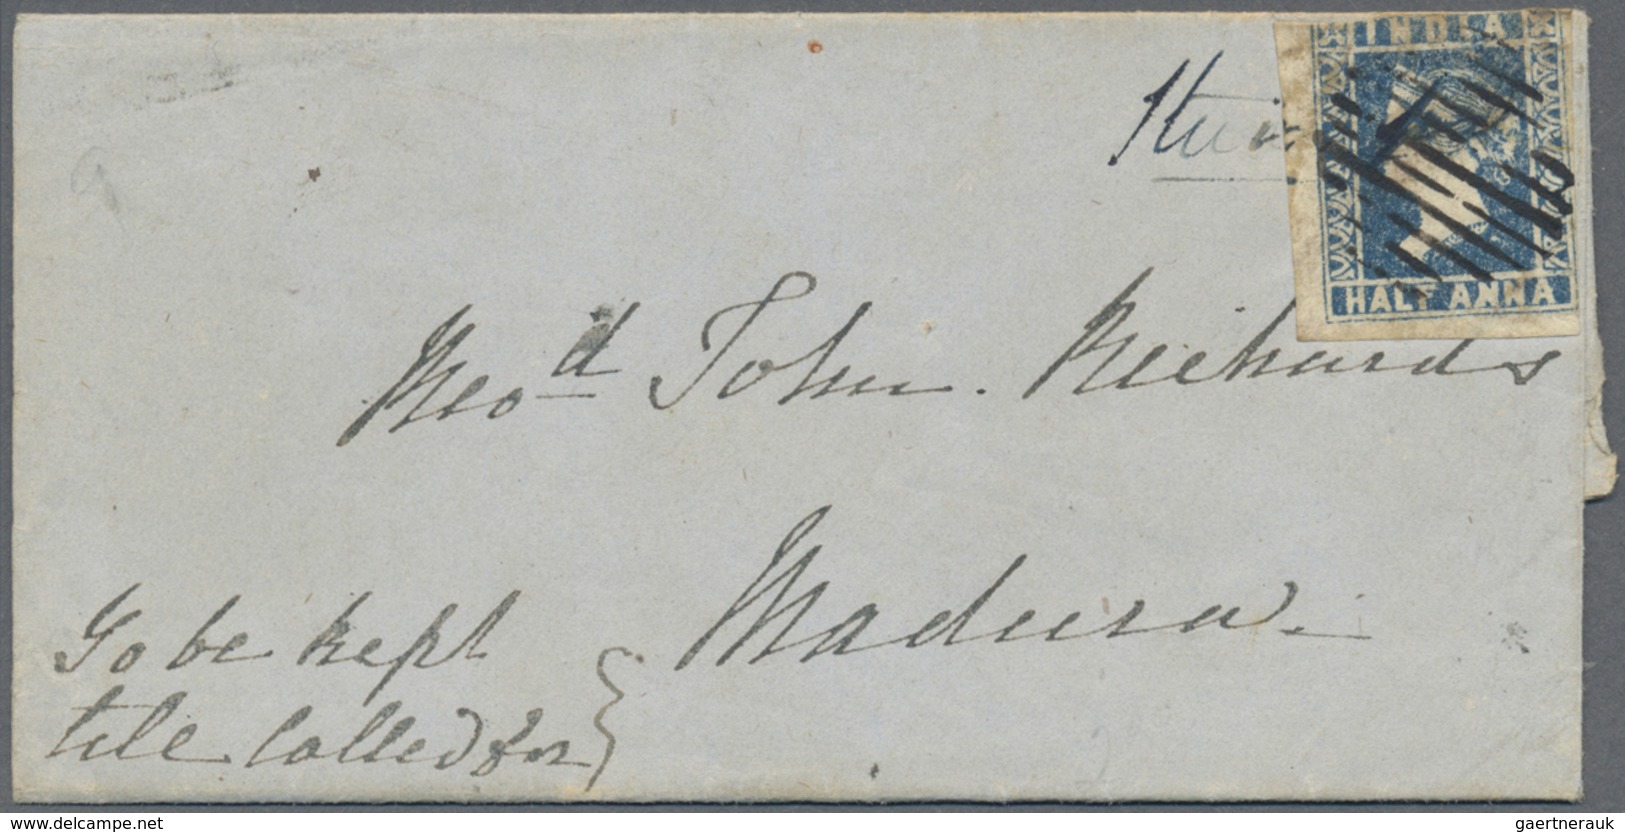 INDIA
HALF ANNA
John. Richards
Madura.
To be kept
till Called for
www.delcampe.net
gaertnerauk